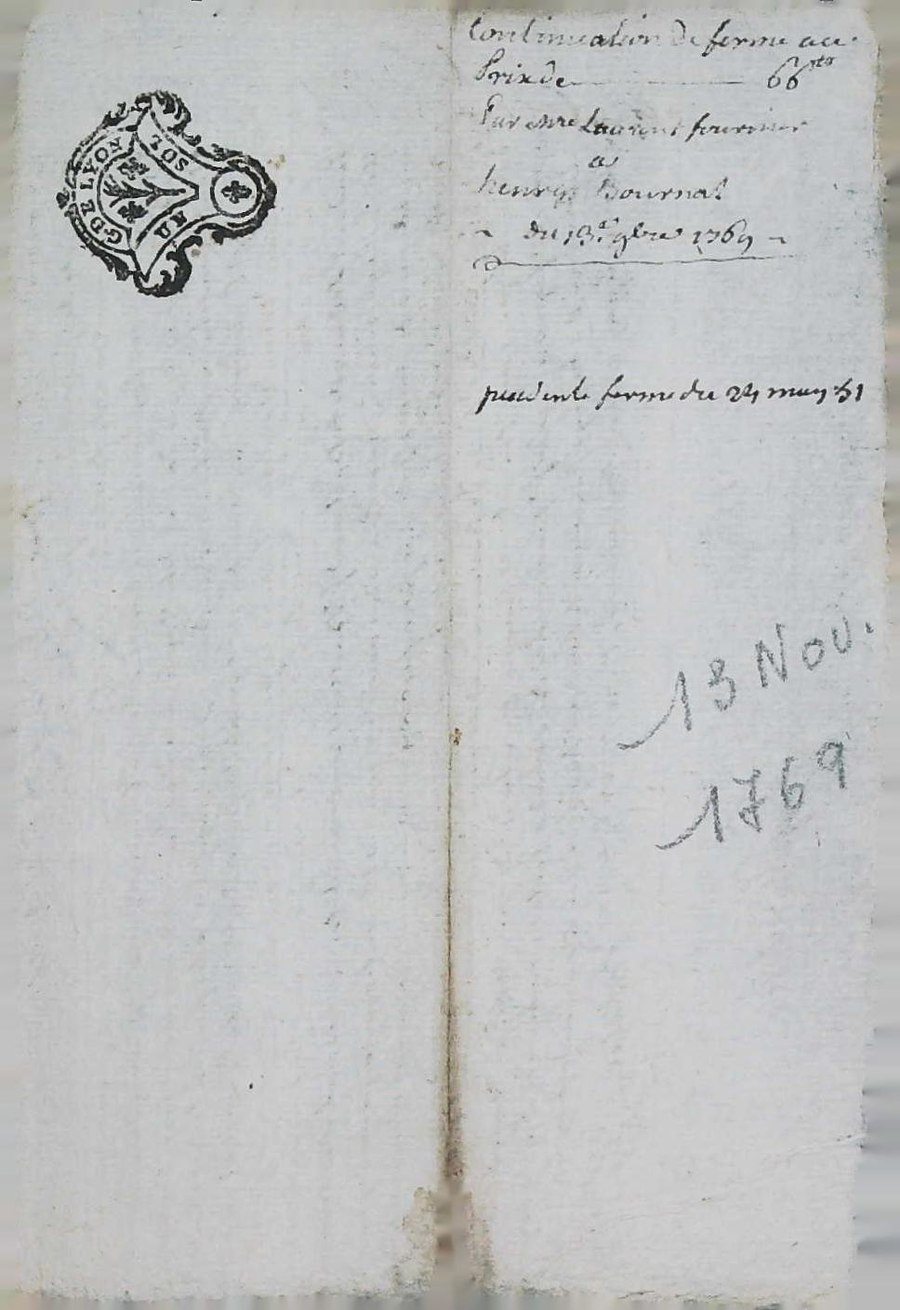 G. DE LYON
UN SOL
Continuation de ferme au
Prix de 66ᵗᵗˢ
Par mre Laurent fournier
a
henry Bournat
du 13.e 9bre 1769
ferme du 24 may 51
13 Nov.
1769